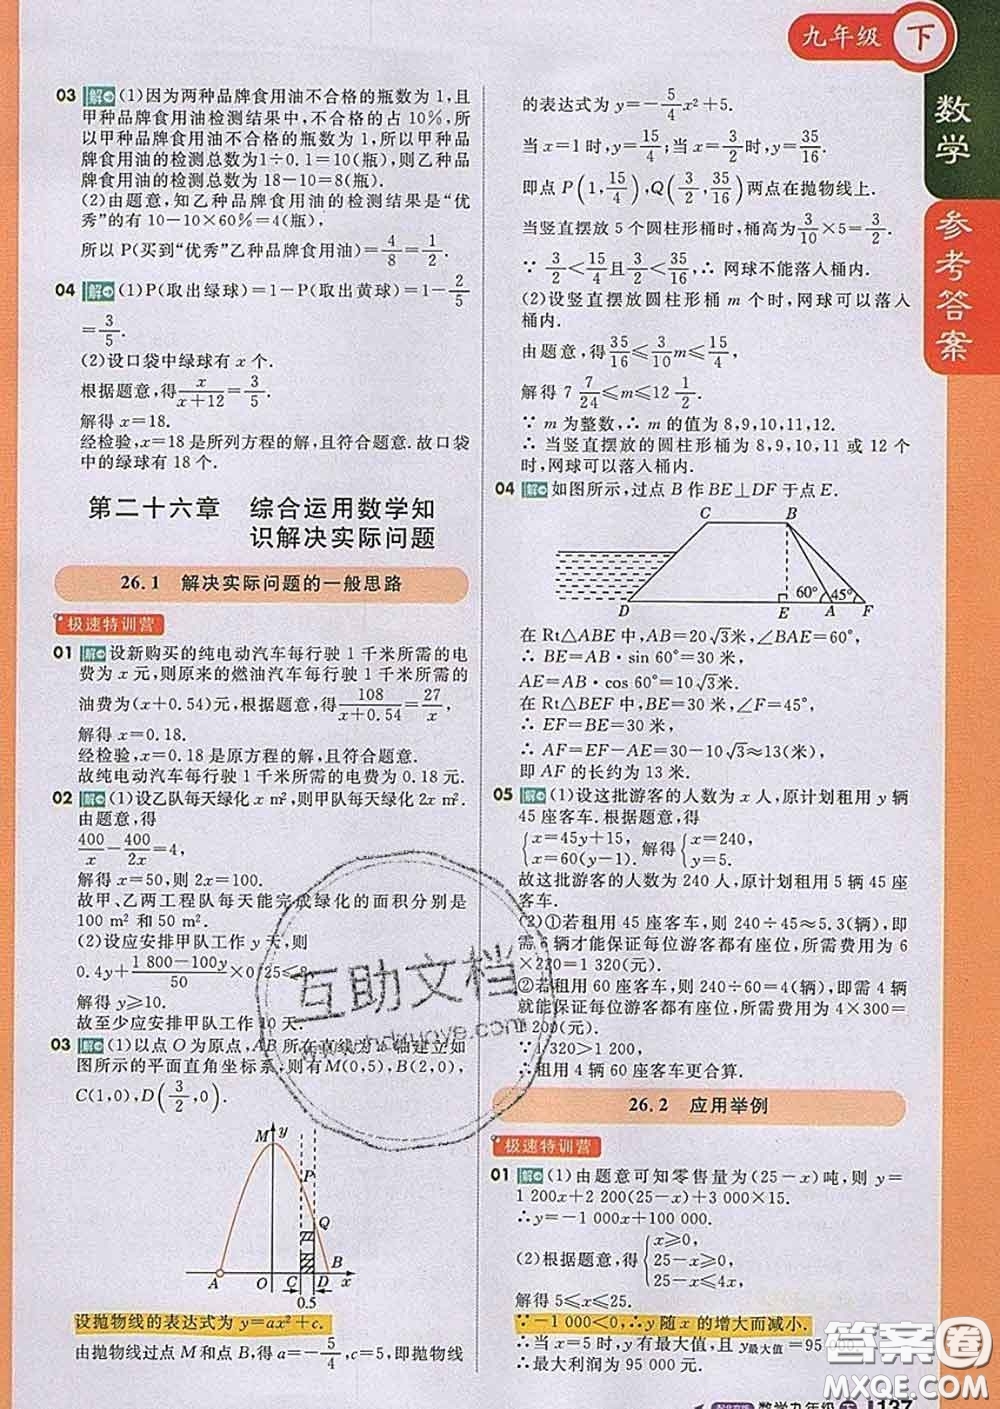 九年级 下
数学
参考答案
03 解 (1)因为两种品牌食用油不合格的瓶数为1,且
甲种品牌食用油检测结果中,不合格的占10%,所
以甲种品牌食用油不合格的瓶数为1,所以甲种品
牌食用油的检测总数为1÷0.1=10(瓶),则乙种品
牌食用油的检测总数为18-10=8(瓶).
(2)由题意,知乙种品牌食用油的检测结果是“优
秀”的有10-10×60%=4(瓶).
所以P(买到“优秀”乙种品牌食用油)=4/8=1/2.
04 解 (1)P(取出绿球)=1-P(取出黄球)=1-2/5
=3/5.
(2)设口袋中绿球有x个.
根据题意,得x/(x+12)=3/5.
解得x=18.
经检验,x=18是所列方程的解,且符合题意.故口袋
中的绿球有18个.
第二十六章 综合运用数学知
识解决实际问题
26.1 解决实际问题的一般思路
极速特训营
01 解 设新购买的纯电动汽车每行驶1千米所需的电
费为x元,则原来的燃油汽车每行驶1千米所需的
油费为(x+0.54)元,根据题意,得108/(x+0.54)=27/x,
解得x=0.18.
经检验,x=0.18是原方程的解,且符合题意.
故纯电动汽车每行驶1千米所需的电费为0.18元.
02 解 (1)设乙队每天绿化x m²,则甲队每天绿化2x m².
由题意,得
400/x-400/2x=4,
解得x=50,则2x=100.
故甲、乙两工程队每天能完成绿化的面积分别是
100 m²和50 m².
(2)设应安排甲队工作y天,则
0.4y+(1 800-100y)/50×0.25≤8,
解得y≥10.
故至少应安排甲队工作10天.
03 解 (1)以点O为原点,AB所在直线为x轴建立如
图所示的平面直角坐标系,则有M(0,5),B(2,0),
C(1,0),D(3/2,0).
M y
P
Q
B
A O C D x
0.5
设抛物线的表达式为y=ax²+c.
由抛物线过点M和点B,得a=-5/4,c=5,即抛物线
的表达式为y=-5/4x²+5.
当x=1时,y=15/4;当x=3/2时,y=35/16.
即点P(1,15/4),Q(3/2,35/16)两点在抛物线上.
当竖直摆放5个圆柱形桶时,桶高为3/10×5=3/2.
∵3/2<15/4且3/2<35/16,∴网球不能落入桶内.
(2)设竖直摆放圆柱形桶m个时,网球可以落入
桶内.
由题意,得35/16≤3/10m≤15/4,
解得7 7/24≤m≤12 1/2.
∵m为整数,∴m的值为8,9,10,11,12.
∴当竖直摆放的圆柱形桶为8,9,10,11或12个
时,网球可以落入桶内.
04 解 如图所示,过点B作BE⊥DF于点E.
C B
60° 45°
D E A F
在Rt△ABE中,AB=20√3米,∠BAE=60°,
∴BE=AB·sin 60°=30米,
AE=AB·cos 60°=10√3米.
在Rt△BEF中,BE=30米,∠F=45°,
∴EF=BE=30米.
∴AF=EF-AE=30-10√3≈13(米),
即AF的长约为13米.
05 解 (1)设这批游客的人数为x人,原计划租用y辆
45座客车.根据题意,得
{x=45y+15, x=60(y-1). 解得{x=240, y=5.
故这批游客的人数为240人,原计划租用5辆45座
客车.
(2)①若租用45座客车,则240÷45≈5.3(辆),即
需6辆才能保证每位游客都有座位,所需费用为6
×220=1 320(元).
②若租用60座客车,则240÷60=4(辆),即需4辆
就能保证每位游客都有座位,所需费用为4×300=
1 200(元).
∵1 320>1 200,
∴租用4辆60座客车更合算.
26.2 应用举例
极速特训营
01 解 (1)由题意可知零售量为(25-x)吨,则y=
1 200x+2 200(25-x)+3 000×15.
∴y=-1 000x+100 000.
(2)根据题意,得{x≥0, 25-x≥0, 25-x≤4x,
解得5≤x≤25.
∵-1 000<0,∴y随x的增大而减小.
∴当x=5时,y有最大值,且y最大值=95
∴最大利润为95 000元.
数学九年级 下 137
互助文档
答案圈
MXQE.COM